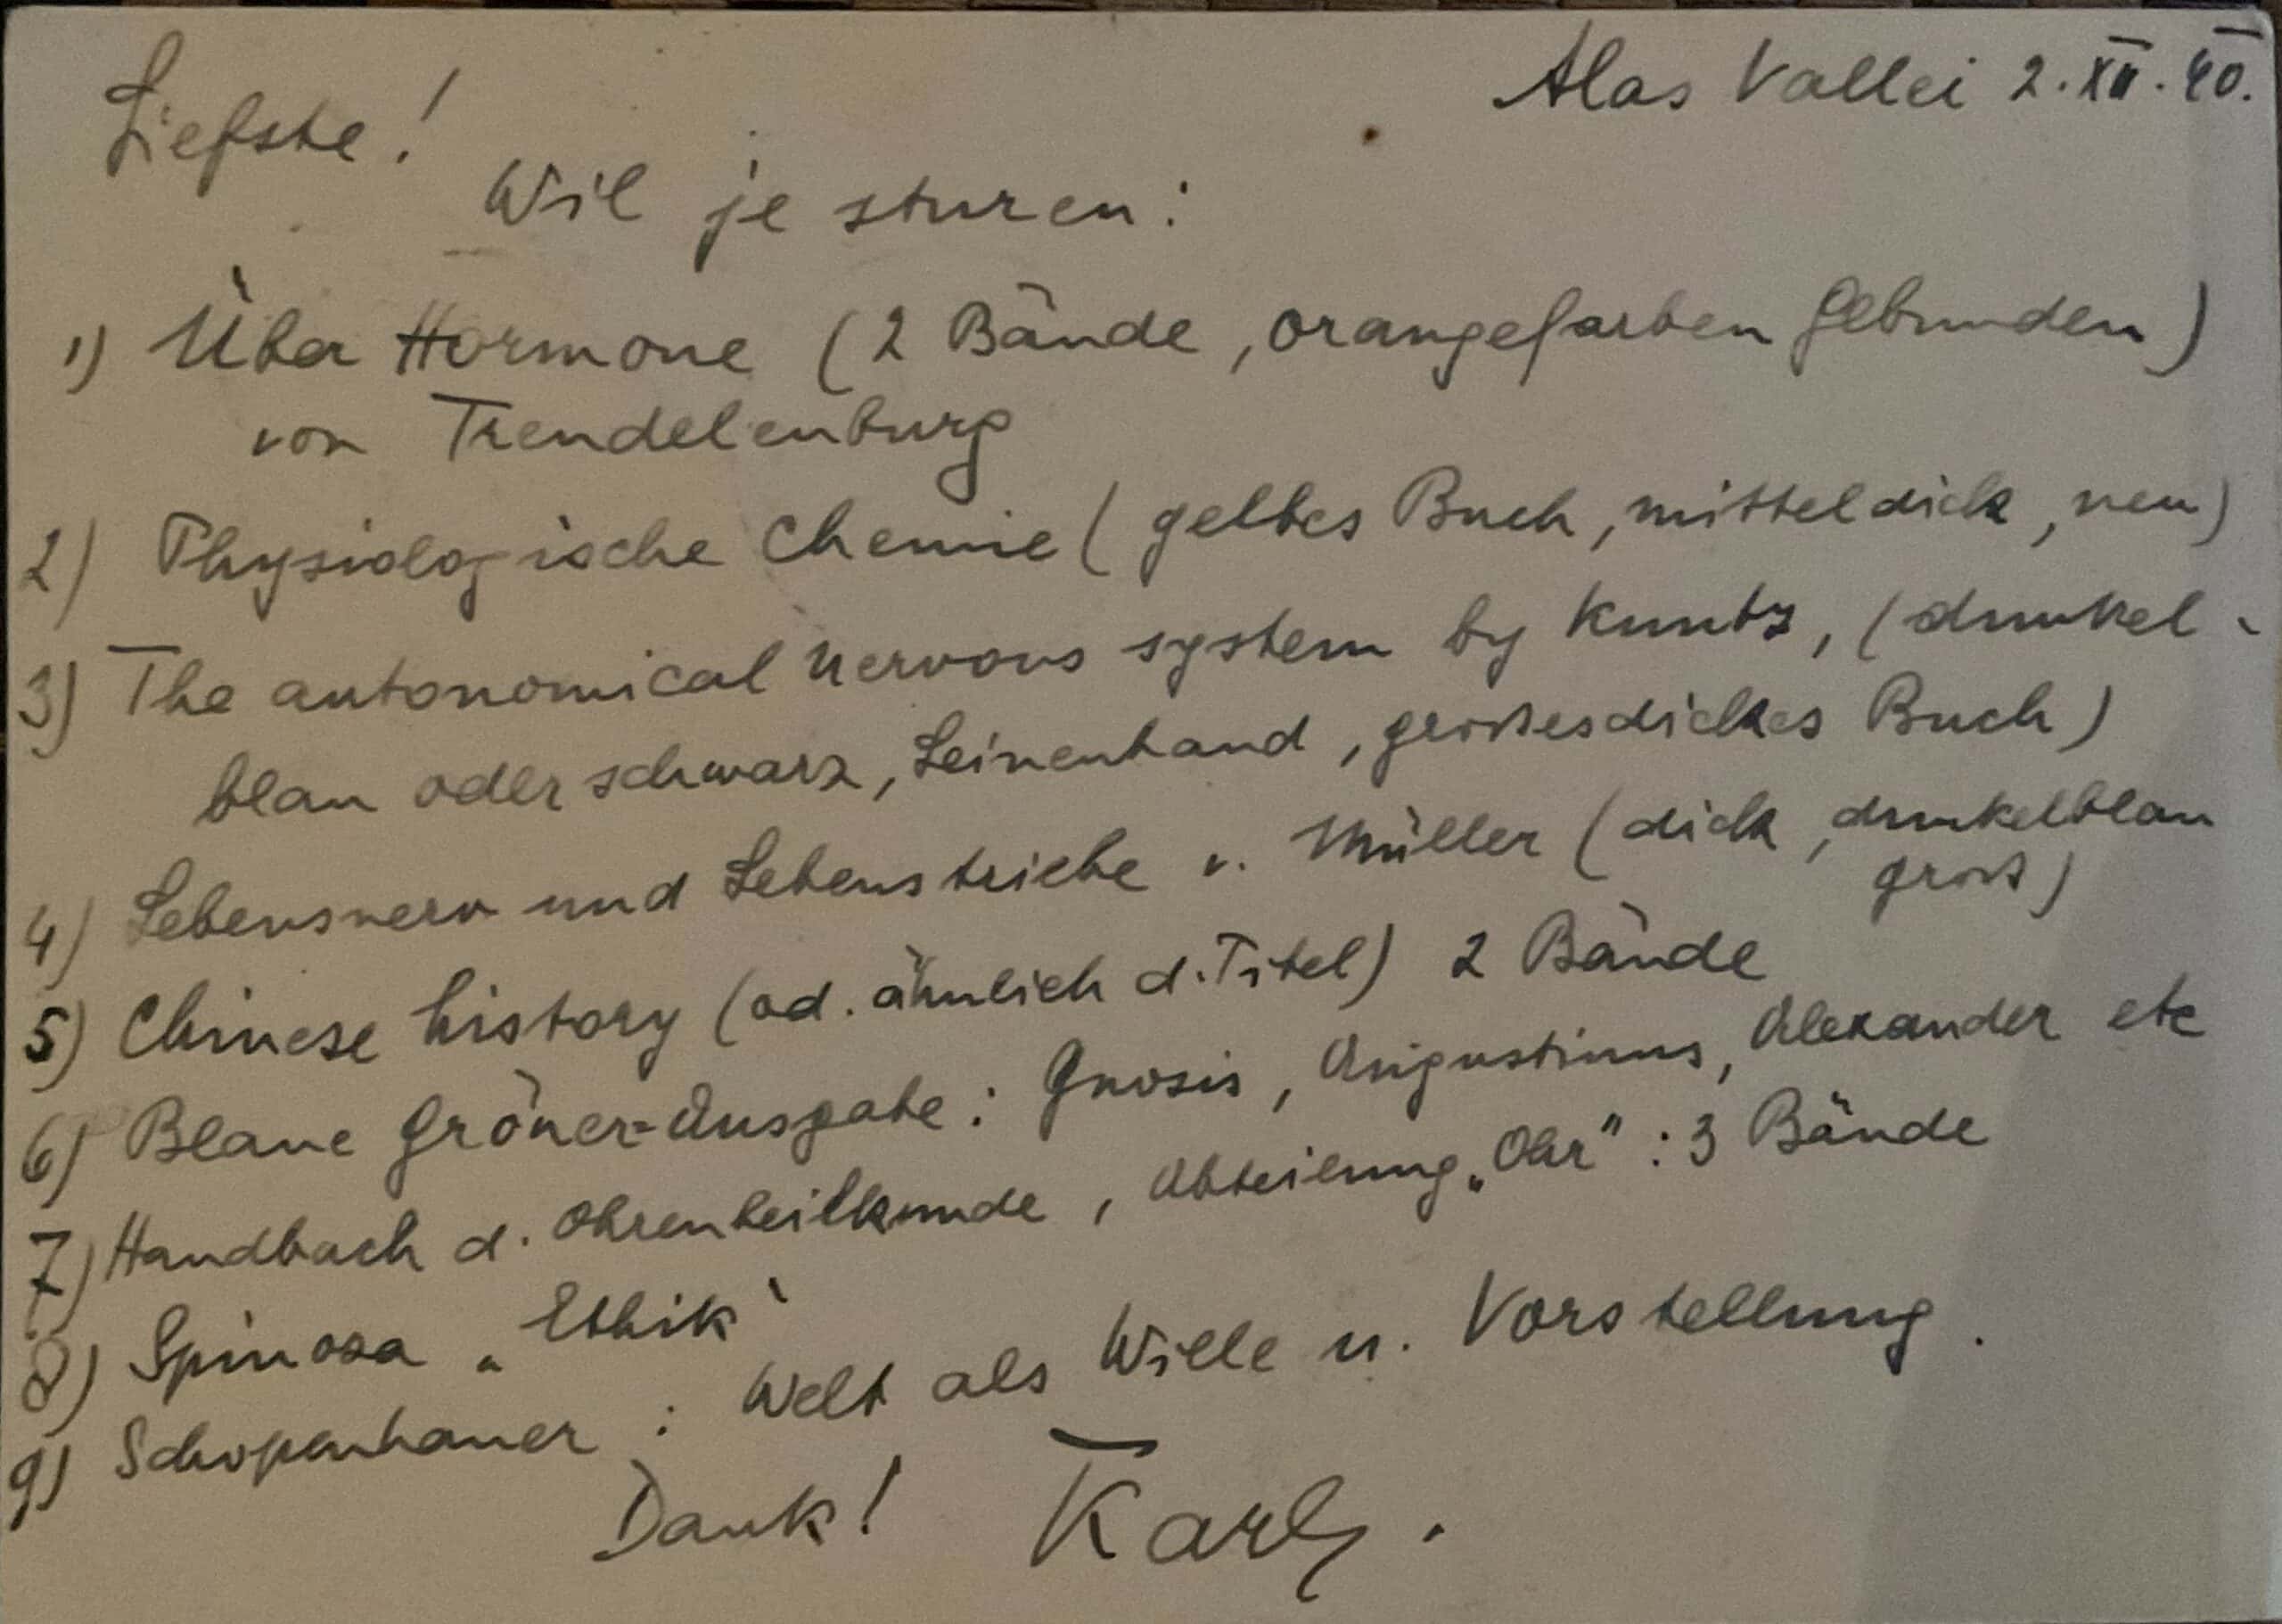 Alas Vallei 2.XII.40.
Liefste!
Wil je sturen:
1) Über Hormone (2 Bände, orangefarben gebunden)
von Trendelenburg
2) Physiologische Chemie (gelbes Buch, mitteldick, neu)
3) The autonomical nervous system by Kuntz, (dunkel-
blau oder schwarz, Leinenband, großes dickes Buch)
4) Lebensnerv und Lebenstriebe v. Müller (dick, dunkelblau
groß)
5) Chinese history (od. ähnlich d. Titel) 2 Bände
6) Blaue Gröner-Ausgabe: Gnosis, Augustinus, Alexander etc
7) Handbuch d. Ohrenheilkunde, Abteilung „Ohr": 3 Bände
8) Spinoza „Ethik"
9) Schopenhauer: Welt als Wille u. Vorstellung.
Dank! Karl.